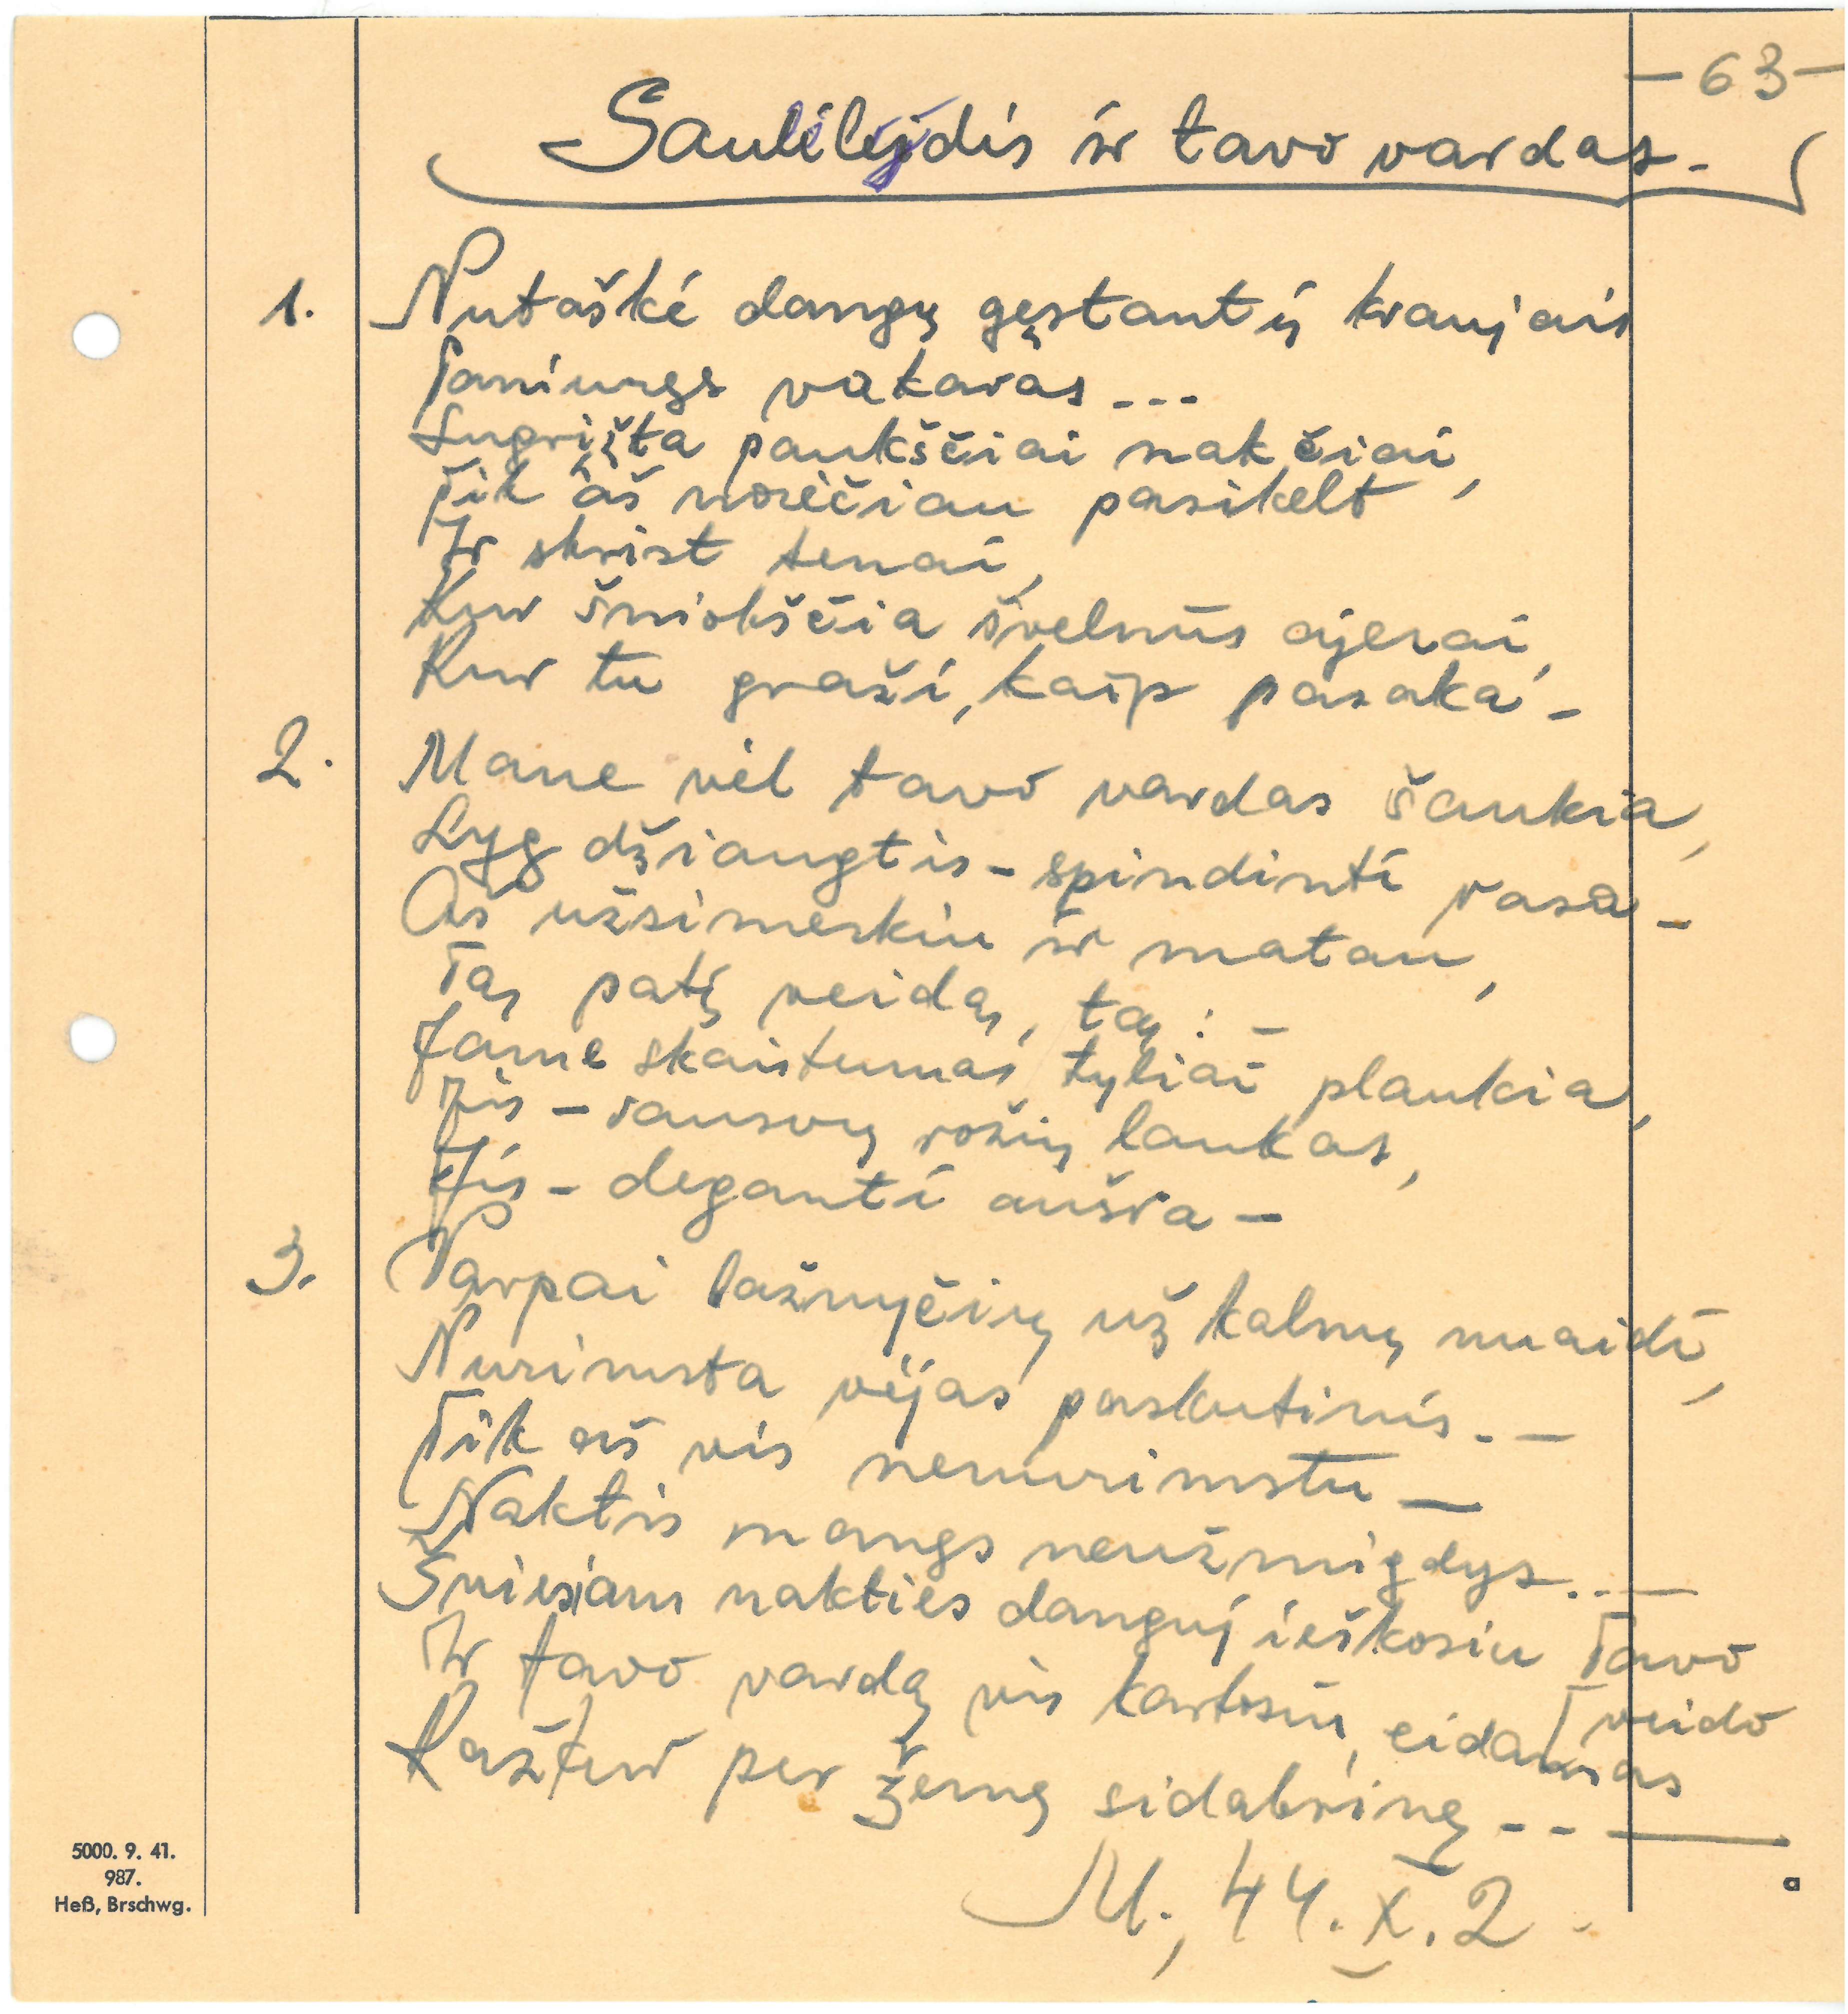 -63-
Saulėlýdis ir tavo vardas.
1. Nutaškė dangų gęstantį kraujais
Paniuręs vakaras...
Sugrįžta paukščiai nakčiai,
Tik aš norėčiau pasikelt
Ir skrist tenai,
Kur šniokščia švelnūs ajerai,
Kur tu graži, kaip pasaka –
2. Mane vėl tavo vardas šaukia,
Lyg džiaugtis – spindinti rasa –
Aš užsimerkiu ir matau,
Tą patį veidą, tą: –
Jame skaistumas tyliai plaukia,
Jis – rausvų rožių laukas,
Jis – deganti aušra –
3. Varpai bažnyčių už kalnų nuaidi,
Nurimsta vėjas paskutinis. –
Tik aš vis nenurimstu –
Naktis manęs neužmigdys.. –
Šviesiam nakties danguj ieškosiu Tavo
veido
Ir tavo vardą vis kartosiu, eidamas
Kažkur per žemę sidabrinę.. –
M., 44.X.2.
5000. 9. 41.
987.
Heß, Brschwg.
a